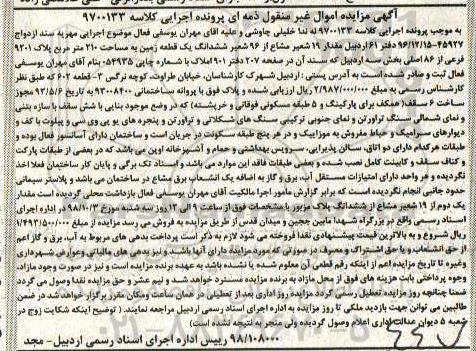 آگهی مزایده اموال غیر منقول ذمه ای پرونده اجرایی کلاسه ۹۷۰۰۱۳۳
به موجب پرونده اجرایی کلاسه ۹۷۰۰۱۳۳ له ندا خلیلی چاوشی و علیه آقای مهران یوسفی فعال موضوع اجرایی مهریه سند ازدواج
۴۵۹۲۷-۹۶/۱۲/۱۵ دفتر ۶۱ اردبیل مقدار ۱۹ شعیر مشاع از ۹۶ شعیر ششدانگ یک قطعه زمین به مساحت ۲۱۰ متر مربع پلاک ۹۲۰۱
فرعی از ۸۶ اصلی بخش سه اردبیل که سند آن در صفحه ۲۰۷ دفتر ۹۰۱ املاک با شماره چاپی ۰۵۴۹۳۵ بنام آقای مهران یوسفی
فعال ثبت و صادر شده است به آدرس پستی : اردبیل شهرک کارشناسان، خیابان طراوت، کوچه نرگس ۳- قطعه ۶۰۲ که طبق نظر
کارشناس رسمی به مبلغ ۲/۹۸۷/۰۰۰/۰۰۰ ریال ارزیابی شده و پلاک فوق با پروانه ساختمانی ۹۳۰۰۸۴۰۰ به تاریخ ۹۳/۵/۶ مجوز
ساخت ۶ سقف( همکف برای پارکینگ و ۵ طبقه مسکونی فوقانی و خرپشته) که در وضع موجود بنایی با شش سقف با سازه بتنی
و نمای شمالی سنگ تراورتن و نمای جنوبی ترکیبی سنگ های شکلاتی و تراورتن و پنجره های یو پی وی سی و پیلوت با کف و
دیوارهای سرامیک و حیاط مفروش به موزاییک و در هر پنج طبقه سکونت در جریان است و ساختمان دارای آسانسور فعال بوده و
طبقات هرکدام دارای دو اتاق، سالن پذیرایی، سرویس بهداشتی و حمام و آشپزخانه اوپن می باشد که در بعضی از طبقات پارکت
و کناف سقف و کابینت کامل نصب شده و بعضی طبقات فاقد این موارد می باشد و اسناد تک برگی و پایان کار ساختمان فعلا اخذ
نگردیده و هر واحد دارای امتیازات مستقل آب، برق و گاز به اضافه یک انشعاب برق مشاع در ساختمان می باشد و پلاستر سیمانی
حدود جانبی انجام نگردیده است که برابر گزارش مأمور اجرا مالکیت آقای مهران یوسفی فعال بازداشت محلی گردیده است مقدار
یک دوم از ۱۹ شعیر مشاع از ششدانگ پلاک مزبور با مشخصات فوق از ساعت ۹ الی ۱۲ روز سه شنبه مورخ ۹۸/۱۰/۳ در اداره اجرای
اسناد رسمی واقع در بزرگراه شهدا مابین ججین و میدان قدس از طریق مزایده به فروش می رسد مزایده از مبلغ ۱/۴۹۳/۵۰۰/۰۰۰
ریال شروع و به بالاترین قیمت پیشنهادی نقدا فروخته می شود لازم به ذکر است پرداخت بدهی های مربوط به آب، برق و گاز اعم
از حق انشعاب و یا حق اشتراک و مصرف در صورتی که مورد مزایده دارای آنها باشد و نیز بدهی های مالیاتی وعوارض شهرداری
وغیره تا تاریخ مزایده اعم از اینکه رقم قطعی آن معلوم شده یا نشده باشد به عهده برنده مزایده است و نیز در صورت وجود مازاد،
وجوه پرداختی بابت هزینه های فوق از محل مازاد به برنده مزایده مسترد خواهد شد و نیم عشر و حق مزایده نقدا وصول می گردد
ضمنا چنانچه روز مزایده تعطیل رسمی گردد مزایده روز اداری بعد از تعطیلی در همان ساعت ومکان مقرر برگزار خواهد شد در ضمن
طالبین می توانن جهت بازدید ملکی تا روز مزایده به اداره اجرای اسناد رسمی اردبیل مراجعه نمایند. ( توضیح اینکه شکایت زوج در
شعبه ۵ دیوان عدالت اداری اعلام وصول گردیده ولی منجر به نتیجه نشده است)
۹۸/۱۰۸۰۰۰ رییس اداره اجرای اسناد رسمی اردبیل- مجد